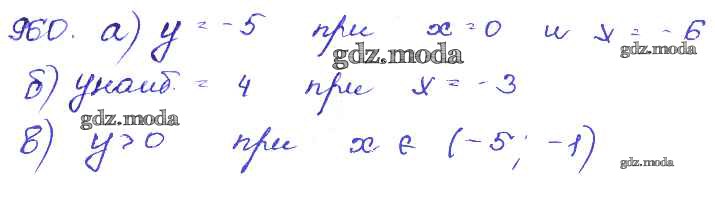 960. а) y = -5 при x = 0 и x = -6
gdz.moda gdz.moda
б) yнаиб. = 4 при x = -3
gdz.moda
в) y > 0 при x ∈ (-5; -1)
gdz.moda